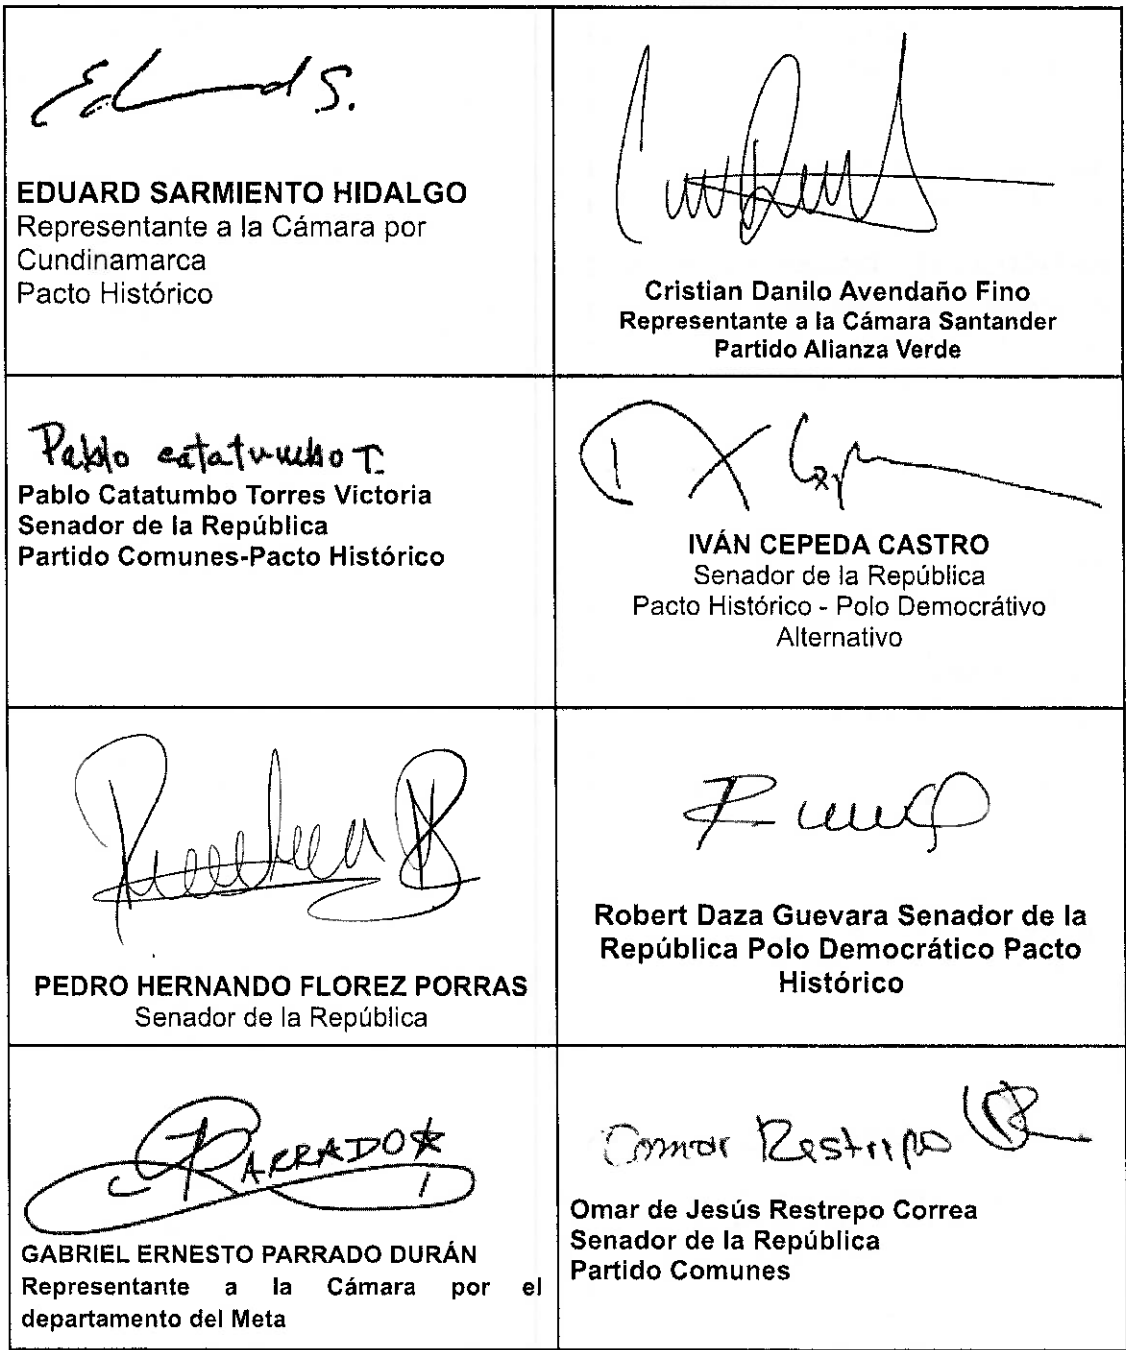 Eduard S.
EDUARD SARMIENTO HIDALGO
Representante a la Cámara por
Cundinamarca
Pacto Histórico
Cristian Danilo Avendaño Fino
Representante a la Cámara Santander
Partido Alianza Verde
Pablo catatumbo T.
Pablo Catatumbo Torres Victoria
Senador de la República
Partido Comunes-Pacto Histórico
IVÁN CEPEDA CASTRO
Senador de la República
Pacto Histórico - Polo Democrátivo
Alternativo
PEDRO HERNANDO FLOREZ PORRAS
Senador de la República
Robert Daza Guevara Senador de la
República Polo Democrático Pacto
Histórico
PARRADO
GABRIEL ERNESTO PARRADO DURÁN
Representante a la Cámara por el
departamento del Meta
Omar Restrepo
Omar de Jesús Restrepo Correa
Senador de la República
Partido Comunes